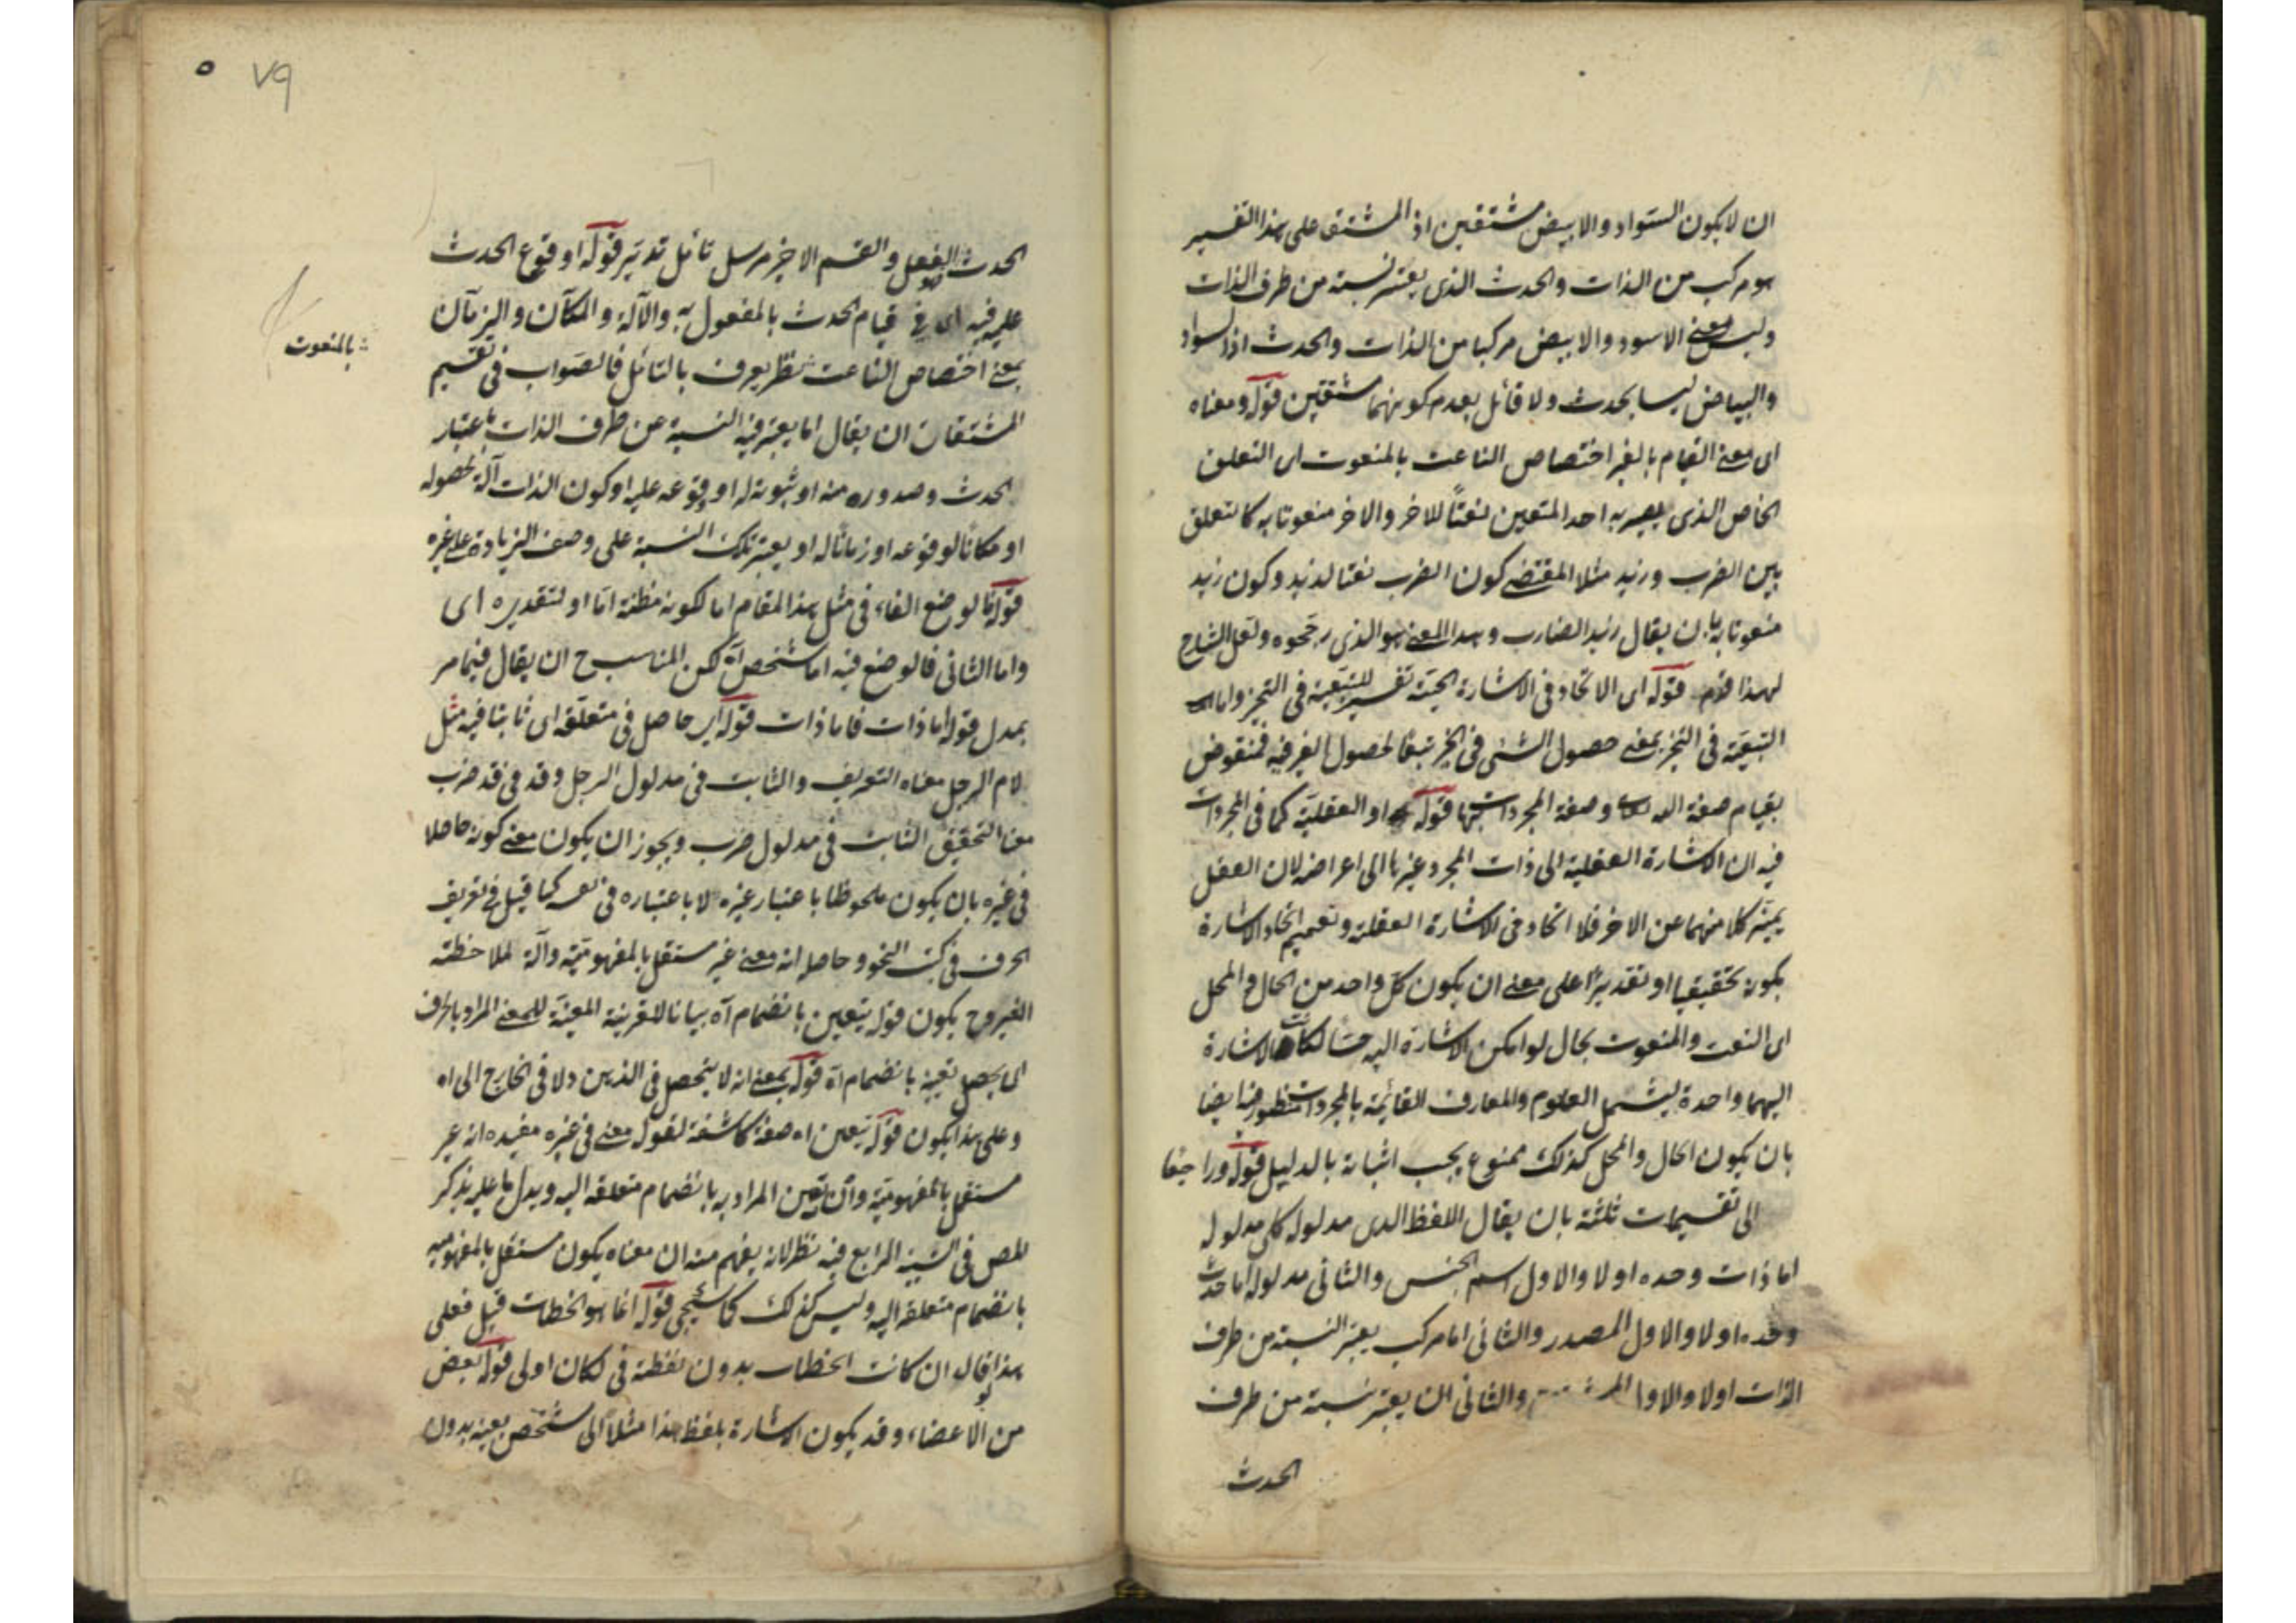 ان لا يكون السواد والابيض مشتقين اذ المشتق على هذا التفسير
هو مركب من الذات والحدث الذي يعتبر نسبة من طرف الذات
وليس معنى الاسود والابيض مركبا من الذات والحدث اذ السواد
والبياض ليسا بحدث ولا قائل بعدم كونهما مشتقين قوله ومعناه
اى معنى القيام بالغير اختصاص الناعت بالمنعوت اى التعلق
الخاص الذي يصير به احد المتعين نعتاً للاخر والاخر منعوتا به كالتعلق
بين الضرب وزيد مثلا المقتضى كون الضرب نعتا لزيد وكون زيد
منعوتا به بان يقال زيد الضارب وهذا المعنى هو الذي رجحوه ولعل الشارح
لهذا قدم قوله اى الاتحاد في الاشارة الحسية تفسير للتبعية في التحيز واما
التبعية في التحيز بمعنى حصول الشئ في الحيز تبعا لحصول الغير فيه فمنقوض
بقيام صفة الله تعالى وصفة المجردات بها قوله او العقلية كما في المجردات
فيه ان الاشارة العقلية الى ذات المجرد غيرها الى اعراضه لان العقل
يميز كلا منهما عن الاخر فلا اتحاد في الاشارة العقلية وتعميم اتحاد الاشارة
بكونه تحقيقيا او تقديرًا على معنى ان يكون كل واحد من الحال والمحل
اى النعت والمنعوت بحال لو امكن الاشارة اليه حسا لكانت الاشارة
اليهما واحدة ليشمل العلوم والمعارف القائمة بالمجردات منظور فيه ايضا
بان يكون الحال والمحل كذلك ممنوع يجب اثباته بالدليل قوله وراجعا
الى تقسيمات ثلثة بان يقال اللفظ الذى مدلوله كلى مدلوله
اما ذات وحده اولا والاول اسم الجنس والثانى مدلوله اما حدث
وحده اولا والاول المصدر والثانى اما مركب يعتبر النسبة من طرف
الذات اولا والاول والثانى ان يعتبر نسبة من طرف
الحدث
٧٩
الحدث الفعل والقسم الاخير مرسل تأمل تدبر قوله او وقوع الحدث
عليه فيه اى في قيام الحدث بالمفعول به والآلة والمكان والزمان
بمعنى اختصاص الناعت نظر يعرف بالتأمل فالصواب في تقسيم
بالمنعوت
المشتقات ان يقال اما يعتبر فيه النسبة من طرف الذات باعتبار
الحدث وصدوره منه او ثبوته له او وقوعه عليه او كون الذات آلة لحصوله
او مكانًا لوقوعه او زمانًا له او يعتبر تلك النسبة على وصف الزيادة على غيره
قوله فالوضع الفاء في مثل هذا المقام اما لكونه مظنة اما او لتقديره اى
واما الثانى فالوضع فيه اما مشخص اه لكن المناسب ح ان يقال فيما مر
بمدل قوله اما ذات فاما ذات قوله اى حاصل في متعلقه اى ثابتا فيه مثل
لام الرجل معناه التعريف والثابت في مدلول الرجل وقد في قد ضرب
معناه التحقيق الثابت في مدلول ضرب ويجوز ان يكون معنى كونه حاصلا
في غيره بان يكون ملحوظا باعتبار غيره لا باعتباره في نفسه كما قيل في تعريف
الحرف في كتب النحو وحاصله انه معنى غير مستقل بالمفهومية وآلة لملاحظة
الغير وح يكون قوله يتعين بانضمام اه بيانا للقرينة المعينة للمعنى المراد بالحرف
اى يحصل تعينه بانضمام اه قوله بمعنى انه لا يتحصل في الذهن ولا في الخارج الى اه
وعلى هذا يكون قوله يتعين اه صفة كاشفة لقوله معنى في غيره مفيده انه غير
مستقل بالمفهومية وان تعين المراد به بانضمام متعلقه اليه ويدل عليه ما يذكر
المص في التنبيه الرابع فيه نظر لانه يفهم منه ان معناه يكون مستقل بالمفهومية
بانضمام متعلقه اليه وليس كذلك كما سيجئ قوله انما هو الخطاب قيل فعلى
هذا فلو قال ان كانت الخطاب بدون لفظة في لكان اولى قوله بعض
من الاعضاء وقد يكون الاشارة بلفظ هذا مثلاً الى مشخص بعينه بدون